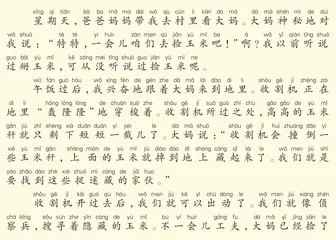 xīng qī tiān bà ba mā ma dài wǒ qù cūn lǐ kàn dà mā dà mā shén mì de duì
星期天，爸爸妈妈带我去村里看大妈。大妈神秘地对
wǒ shuō tè tè yí huìr zán men qù jiǎn yù mǐ ba á wǒ yǐ qián tīng shuō
我说：“特特，一会儿咱们去捡玉米吧！”啊？我以前听说
guò bāi yù mǐ kě cóng méi tīng shuō guò jiǎn yù mǐ
过掰玉米，可从没听说过捡玉米呢。
wǔ fàn guò hòu wǒ xīng fèn de gēn zhe dà mā lái dào dì lǐ shōu gē jī zhèng zài
午饭过后，我兴奋地跟着大妈来到地里。收割机正在
dì lǐ hōng lōng lōng de chuān suō zhe shōu gē jī suǒ guò zhī chù gāo gāo de yù mǐ
地里“轰隆隆”地穿梭着。收割机所过之处，高高的玉米
gǎn jiù zhǐ shèng xià duǎn duǎn yì jié r le dà mā shuō shōu gē jī huì zhuàng dǎo yì
秆就只剩下短短一截儿了。大妈说：“收割机会撞倒一
xiē yù mǐ gǎn shàng miàn de yù mǐ jiù diào dào dì shàng cáng qǐ lái le wǒ men jiù shì
些玉米秆，上面的玉米就掉到地上藏起来了。我们就是
yào zhǎo dào zhè xiē zhuō mí cáng de jiā huo
要找到这些捉迷藏的家伙。”
shōu gē jī kāi guò qù hòu wǒ men jiù kě yǐ chū dòng le wǒ men jiù xiàng zhēn
收割机开过去后，我们就可以出动了。我们就像侦
chá bīng sōu xún zhe yǐn cáng de yù mǐ bù yí huìr gōng fu dà mā yǐ jīng jiǎn le
察兵，搜寻着隐藏的玉米。不一会儿工夫，大妈已经捡了